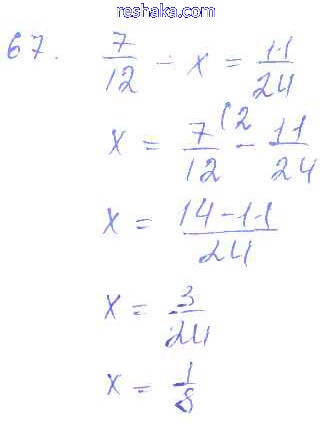 reshaka.com
67. 7/12 - x = 11/24
x = 7/12 (2 - 11/24
x = 14-11/24
x = 3/24
x = 1/8